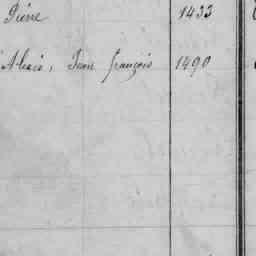 Pierre 1433
Alexis, Jean françois 1490